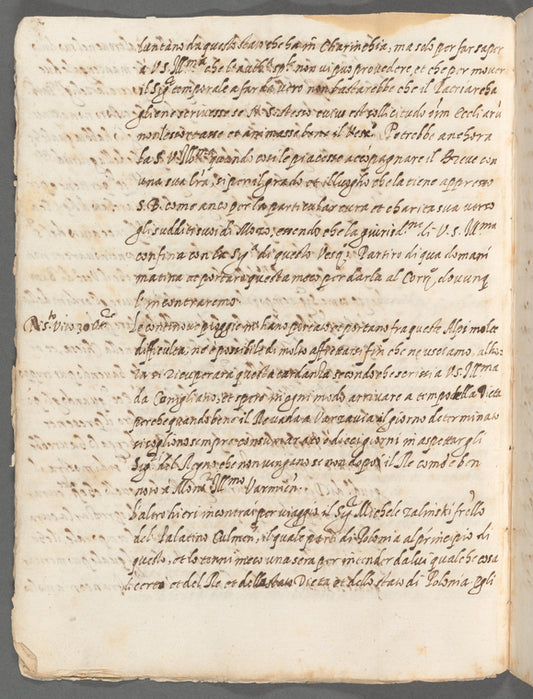 luntano da questo stato che ha in Charinthia, ma solo per far sapere
a V.S. Ill.ma che l'autt.à sp.le non vi puo provedere, et che per mover
il Sig.r temporale a far da vero non bastarebbe che il Patriarcha
gliene scrivesse se
non l'essortasse et animasse bene il Vesc.o Potrebbe anchora
la S. V. Ill.ma quando cosi le piacesse accompagnare il Breve con
una sua l'ra, si per il grado et il luogho che la tiene appresso
S.B. come anco per la particular cura et charita sua verso
gli sudditi suoi di Mozo, essendo che la giurid.ne di V.S. Ill.ma
confina con la Sig.a di questo Vesc.o Partiro di qua domani
matina et portaro questa meco per darla al Corr.o dovunq
l'incontraremo.
le continove pioggie ne hano portato et portano fra queste Alpi molte
difficulta, ne è possibile di molto affrettarsi fin che ne usciamo, all'hora
si ricuperara questa tardanza secondo che scrissi a V.S. Ill.ma
da Conigliano, et spero in ogni modo arrivare a tempo della Dieta
perche quando bene il Re vada a Varzavia il giorno determinato
si sogliono sempre consumar otto o dieci giorni in aspettar gli
Sig.ri del Regno che non vengano se non dopoi il Re com'è ben
noto a Mons.r Ill.mo Varmien.
L'altro hieri incontrai per viaggio il S.r Michele Zalinski fr'ello
del Palatino Culmen., il quale parti di Polonia al principio di
questo, et lo tenni meco una sera per intender da lui qualche cosa
di certo et del Re et della stato Dieta et dello stato di Polonia. Egli